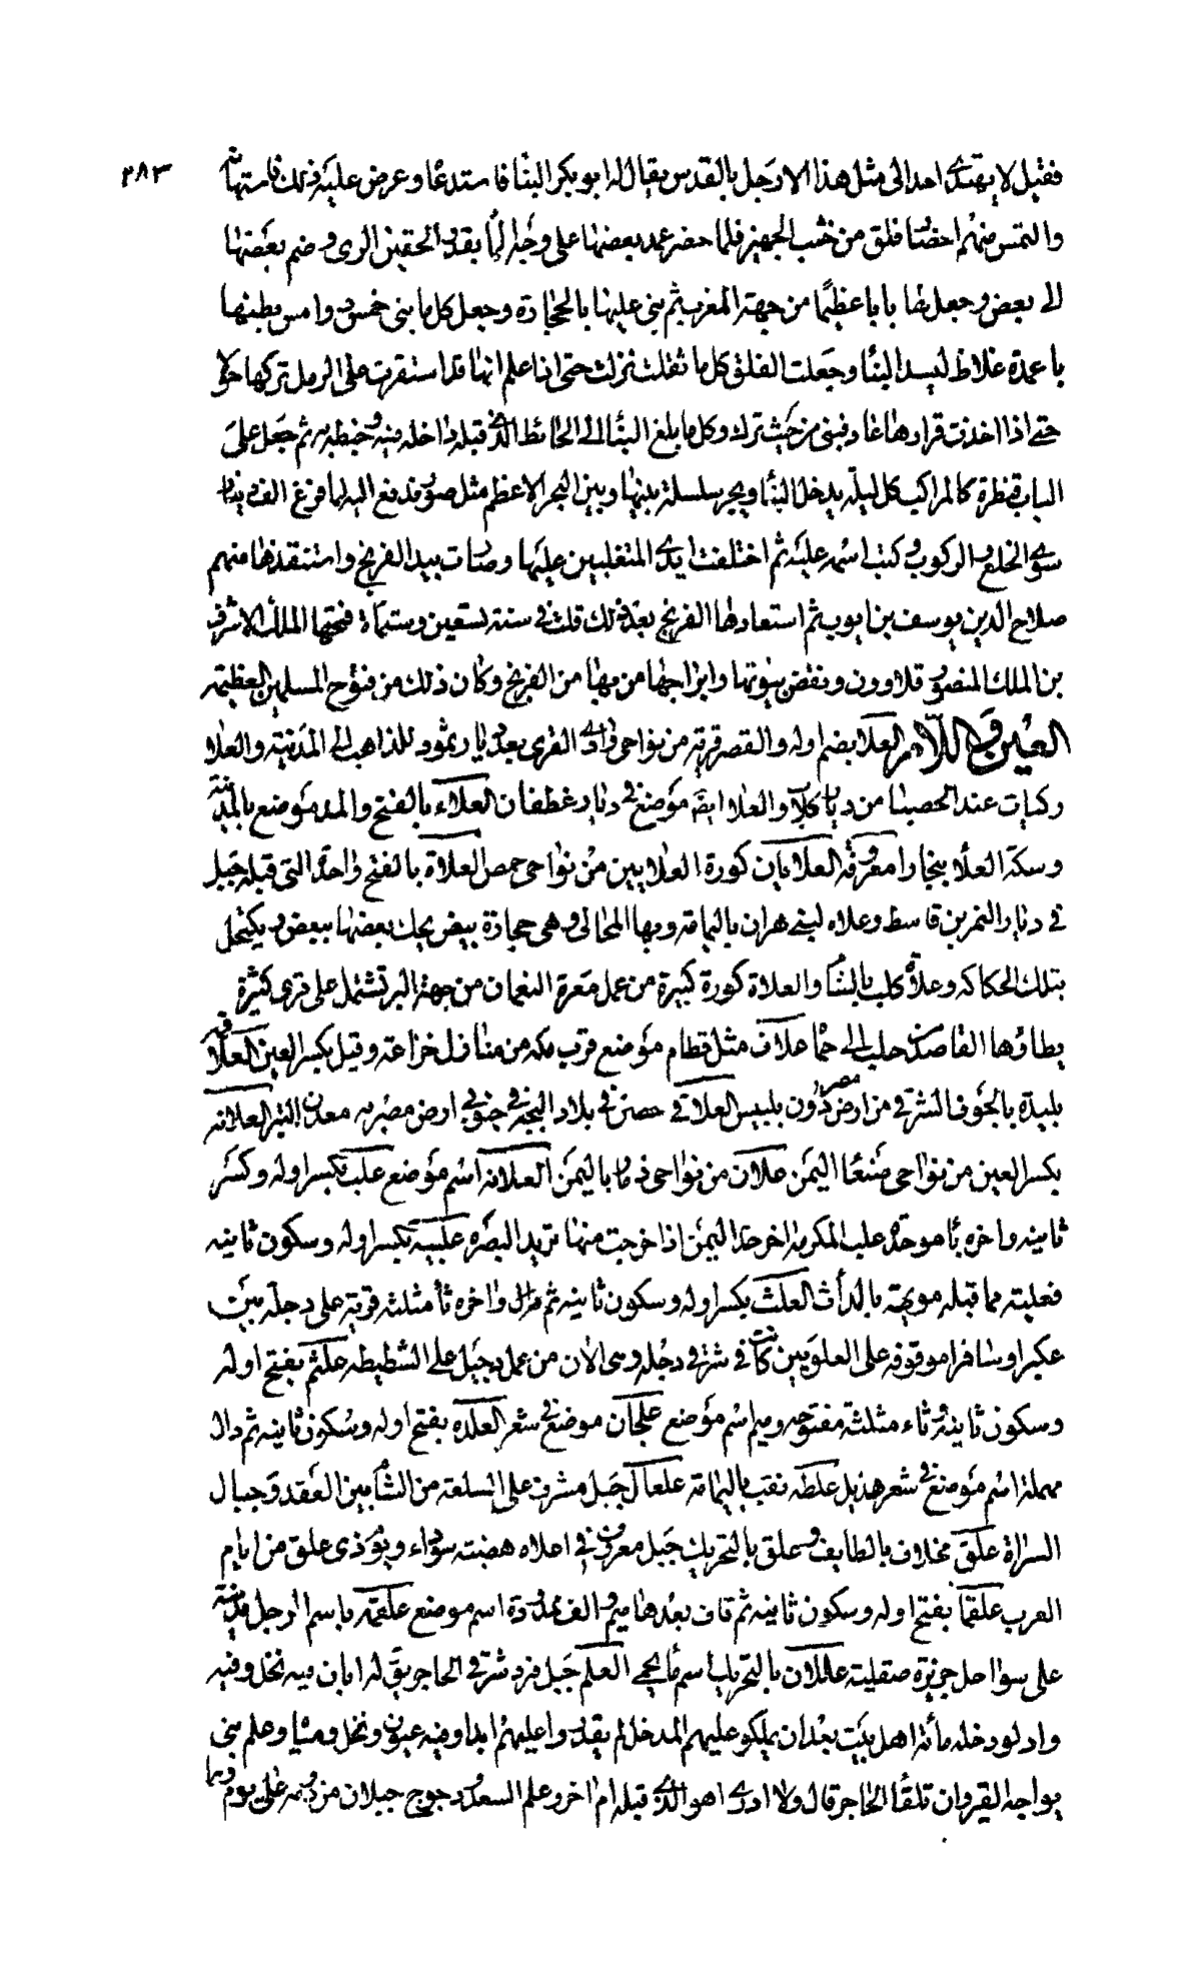 ٢٨٣
فقيل لا يهتدى احد الى مثل هذا الا رجل بالقدس يقال له ابو بكر البنا فاستدعا وعرض عليه ذلك فاستهان
والتمس منهم احضنا فلق من خشب الجميز فلما حضر عمد بعضها على وجه الما بقدر الحقين البرى وضم بعضها
الى بعض وجعل لها بابا عظيما من جهة المغرب ثم بنى عليها بالحجارة وجعل كل ما بنى خمس دوامس بطنها
باعمدة غلاظ ليسد البنا وجعلت الفلق كل ما ثقلت نزلت حتى اذا علم انها قد استقرت على الرمل تركها حولا
حتى اذا اخذت قرارها عاد فبنى من حيث ترك وكل ما بلغ البنا الى الحائط الذى قبله داخله فيه وخيطه به ثم جعل على
الباب قنطرة كالمراكب كل ليلة يدخل البنا ويجر سلسلة بينها وبين البحر الاعظم مثل صور فدفع اليه لما فرغ الف دينار
سوى الخلع والركوب وكتب اسمه عليه ثم اختلفت ايدى المتغلبين عليها وصارت بيد الفرنج واستنقذها منهم
صلاح الدين يوسف بن ايوب ثم استعادها الفرنج بعد ذلك قلت فى سنة تسعين وستماة فتحها الملك الاشرف
بن الملك المنصور قلاوون ونقض بيوتها وابراجها من بها من الفرنج وكان ذلك من فتوح المسلمين العظيمة
العين واللام العلا بضم اوله والقصر قرية من نواحى وادى القرى بعد ديار ثمود للذاهب الى المدينة والعلا
ركيات عند الحصينا من ديار كلاب والعلا ايضا موضع فى ديار غطفان العلاء بالفتح والمد موضع بالمدينة
وسكة العلا ببخارا معروفة العلايان كورة العلايين من نواحى حمص العلاة بالفتح واحدة التى قبله جبل
فى ديار النمر بن قاسط وعلاه لبنى هزان باليمامة وبها المحالى وهى حجارة بيض يحك بعضها ببعض ويكتحل
بتلك الحكاكه وعلاة كلب بالشام والعلاة كورة كبيرة من عمل معرة النعمان من جهة البر تشتمل على قرى كثيرة
يطاؤها القاصد من حلب الى حما علاف مثل قطام موضع قرب مكه من منازل خزاعة وقيل بكسر العين العلاقمه
بليدة بالحوف الشرقى من ارض مصر دون بلبيس العلاقى حصن فى بلاد البجه فى جنوبى ارض مصر به معدن التبر العلانه
بكسر العين من نواحى صنعا اليمن علان من نواحى ذمار باليمن العلانه اسم موضع علب بكسر اوله وكسر
ثانيه واخره با موحدة علب الكرمه اخر حد اليمن اذا خرجت منها تريد البصره علبية بكسر اوله وسكون ثانيه
فعلية مما قبله مويهة بالدأث العلث بكسر اوله وسكون ثانيه ثم واخره ثا مثلثه قرية على دجلة بين
عكبرا وسامرا موقوفه على العلويين كانت فى شرقى دجله وهى الان من عمل دجيل على الشطيطه علثم بفتح اوله
وسكون ثانيه وثاء مثلثة مفتوحه وميم اسم موضع علجان موضع فى شعر العلده بفتح اوله وسكون ثانيه ثم دال
مهملة اسم موضع فى شعر هذيل علطه نقب باليمامة علعال جبل مشرف على البسلعة من الشام بين العقد وجبال
السراة علق مخلاف بالطايف وعلق بالتحريك جبل معروف فى اعلاه هضبة سوداء ويوم ذى علق من ايام
العرب علقما بفتح اوله وسكون ثانيه ثم قاف بعدها ميم والف ممدودة اسم موضع علقمة باسم الرجل مدينة
على سواحل جزيرة صقلية عللان بالتحريك اسم ما بحمى العلم جبل فرد شرقى الحاجر يق له ابان فيه نخل وفيه
واد لو دخله مأة اهل بيت بعد ان يملكو عليهم المدخل لم يقدروا عليهم ابدا وفيه عيون ونخل ومياه وعلم بنى
يواجه القيروان تلقا الحاجر قال ولا ادرى اهو الذى قبله ام اخر وعلم السعد ودجوج جبلان من دومه على يوم وهما